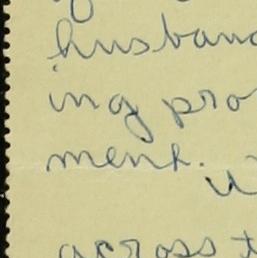 husband
ing pro
ment.
across t